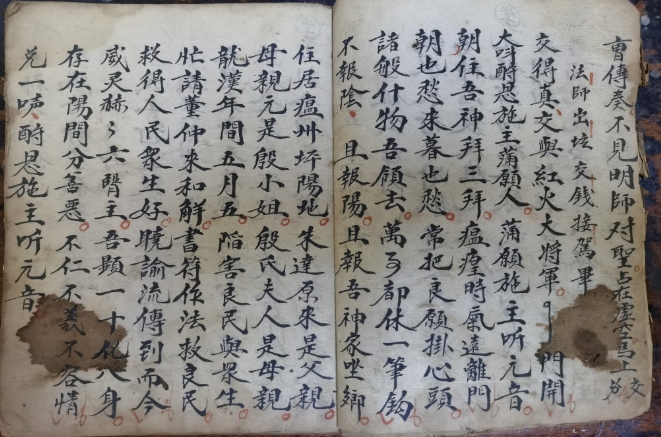 曹傳奏不見明師对聖占在虛空馬上交
法師出坛交钱接駕畢
交得真交與紅火大將軍 門開
大叫酧恩施主蒲願人蒲願施主听元音
朝住吾神拜三拜瘟瘽時氣遠離門
朝也愁來暮也愁常把良願掛心頭
諸般什物吾領去萬事都休一筆鈎
不報陰且報陽且報吾神家坐鄉
住居瘟州坪陽地朱達原來是父親
母親元是殷小姐殷氏夫人是母親
龍漢年間五月五陷害良民與眾生
忙請董仲來和解書符作法救良民
救得人民衆生好曉諭流傳到而今
威灵赫〻六醫主吾顯一十化八身
存在陽間分善惡不仁不義不容情
兌一声酧恩施主听元音